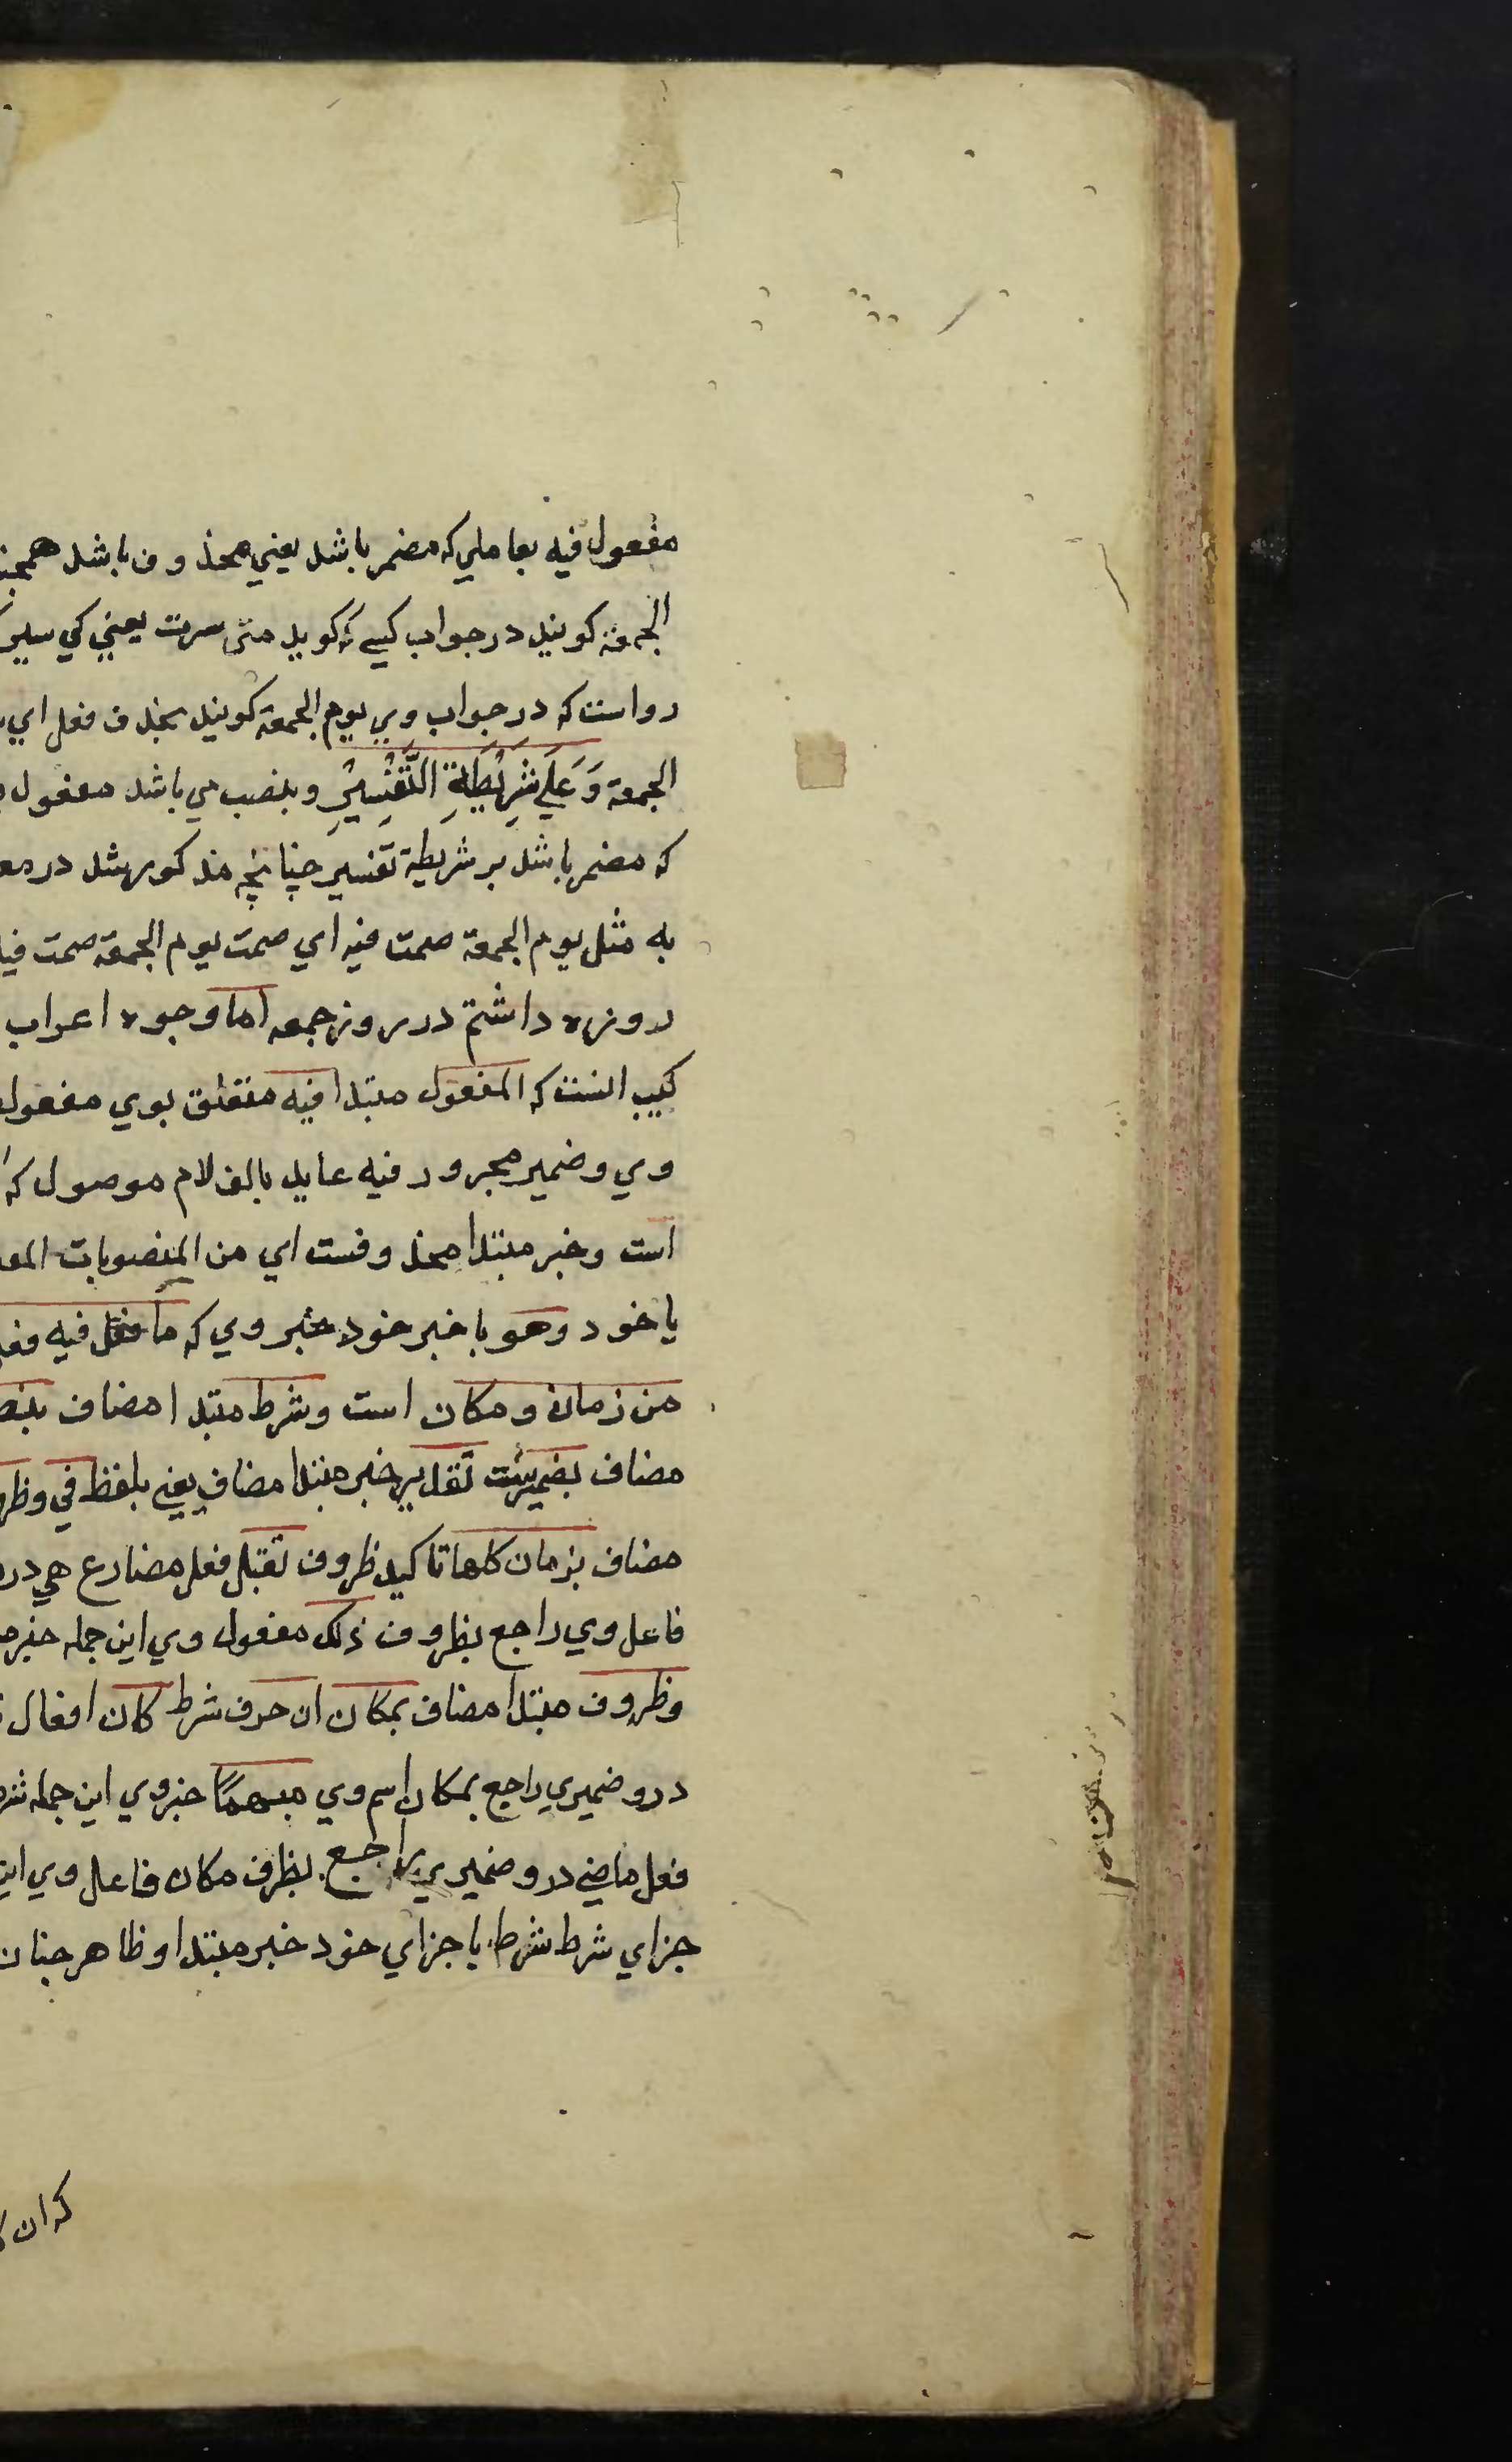 مفعول فيه بعاملي كه مضمر باشد يعني محذوف باشد
الجمعة كويند در جواب كسے كه كويد متى سرت يعني كي سير
رواست كه در جواب وي يوم الجمعة كويند بحذف فعل اي
الجمعة وَعَلَى شَرِيْطَةِ التَّفْسِيْرِ وبنصب مي باشد مفعول
كه مضمر باشد بر شريطة تفسير چنانچه مذكور شد در
به مثل يوم الجمعة صمت فيه اي صمت يوم الجمعة صمت فيه
روزه داشتم در روز جمعه اما وجوه اعراب
كيب انست كه المفعول مبتدا فيه متعلق بوي مفعول
وي وضمير مجرور فيه عايد بالف لام موصول كه
است وخبر مبتدا محذوفست اي من المنصوبات
يا خود وهو با خبر خود خبر وي كه ما فعل فيه
من زمان ومكان است وشرط مبتدا مضاف
مضاف بضميرست تقدير خبر مبتدا مضاف يعني بلفظ في
مضاف بزمان كلها تاكيد ظروف تقبل فعل مضارع هي
فاعل وي راجع بظروف ذلك مفعول وي اين جمله خبر
وظروف مبتدا مضاف بمكان ان حرف شرط كان افعال
درو ضميري راجع بمكان اسم وي مبهمًا خبر وي اين جمله
فعل ماضي درو ضميري راجع بظرف مكان فاعل وي
جزاي شرط شرط با جزاي خود خبر مبتدا وظاهر چنان
كه ان